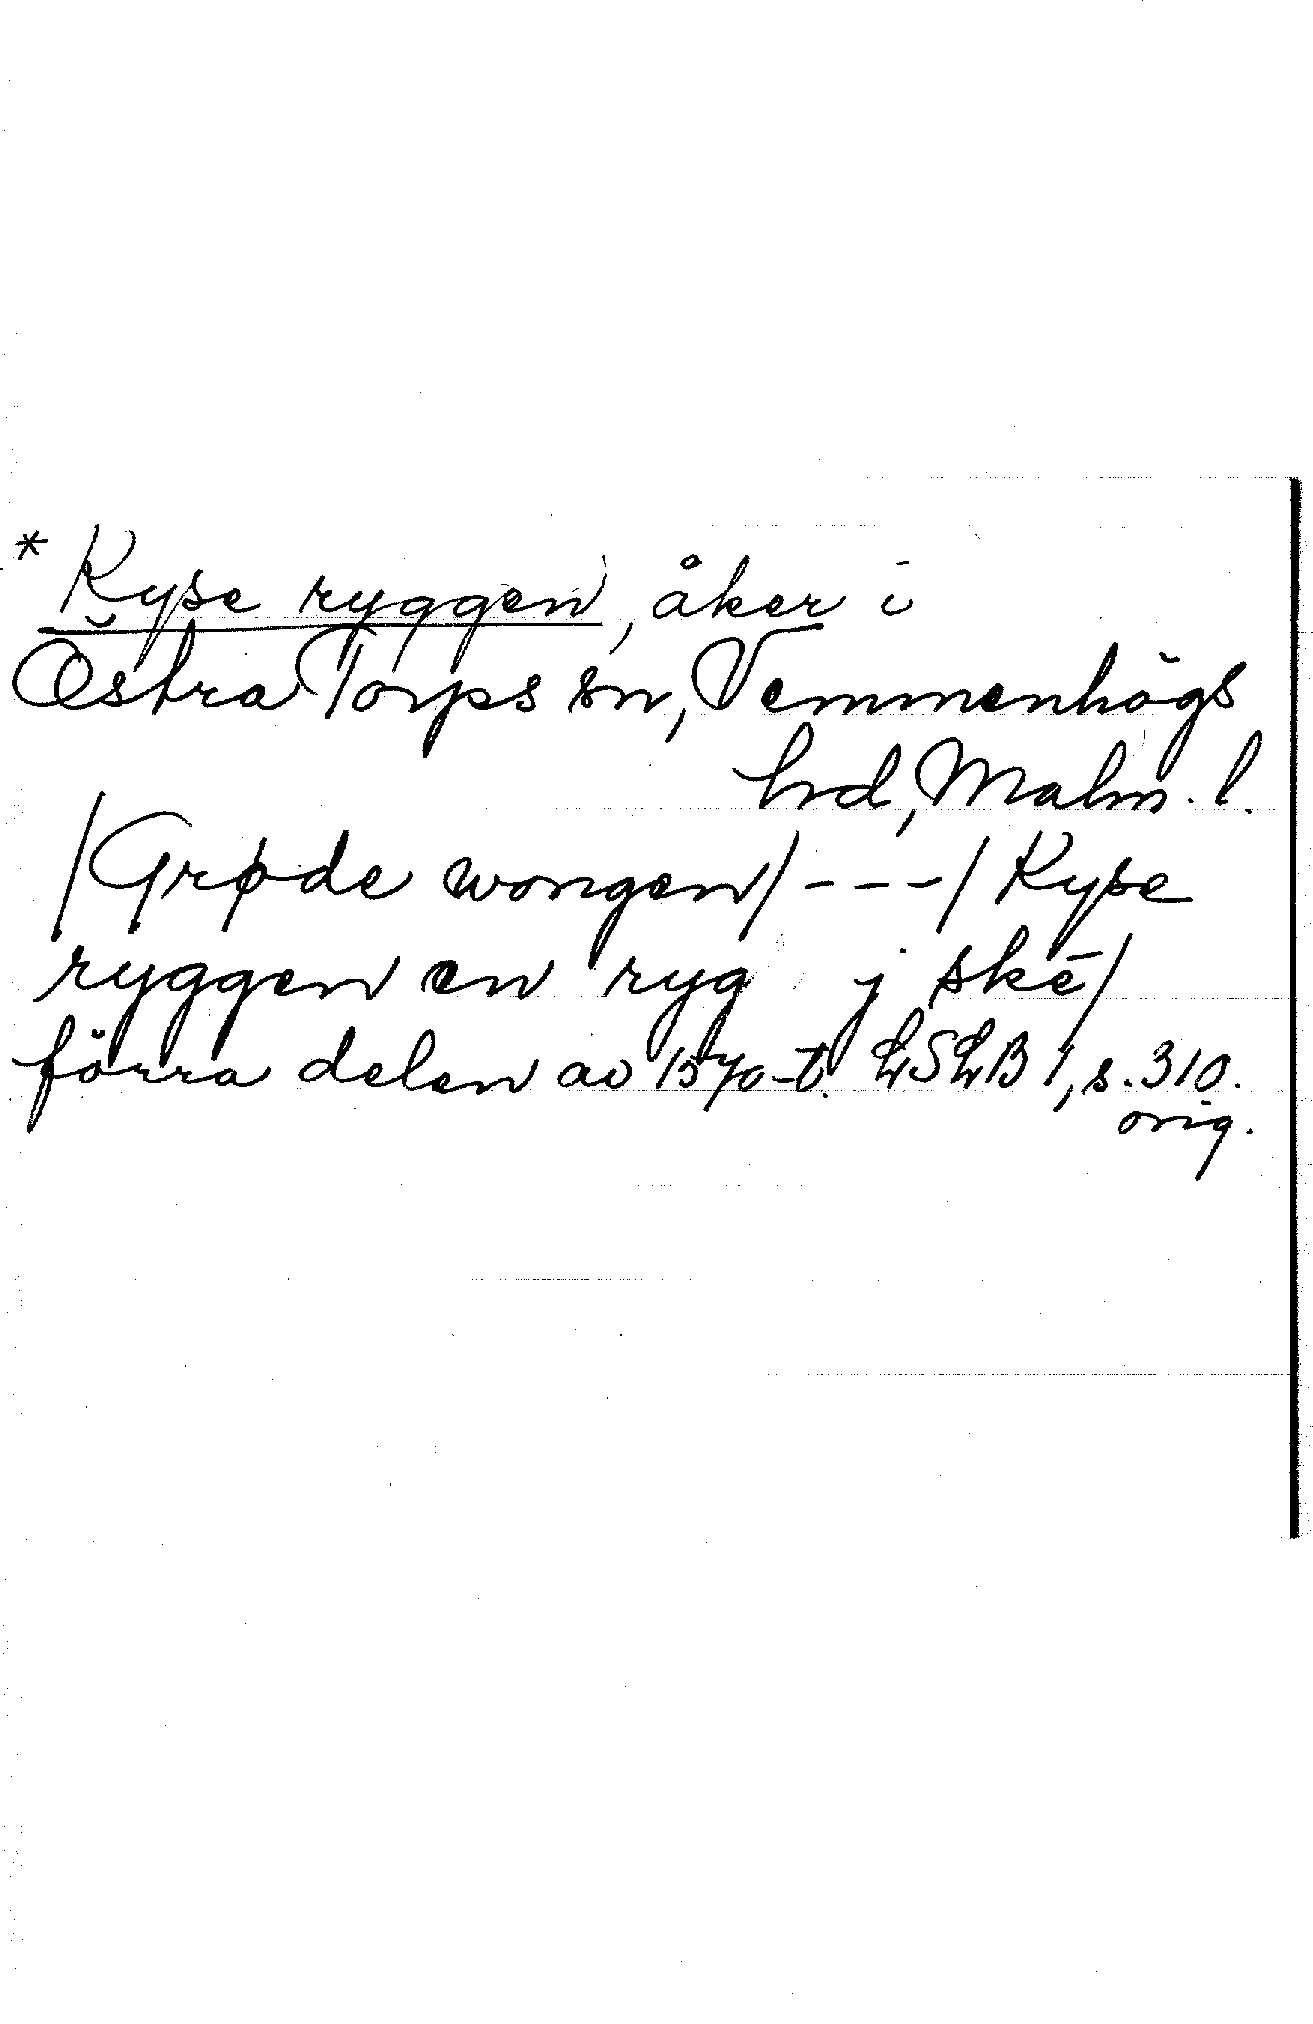 * Kyse ryggen, åker i
Östra Torps sn, Vemmenhögs
hrd, Malm. l.
/Grøde wongen/ - - - / Kyse
ryggen en ryg j skē/
förra delen av 1570-t. LSLB 1, s. 310.
orig.